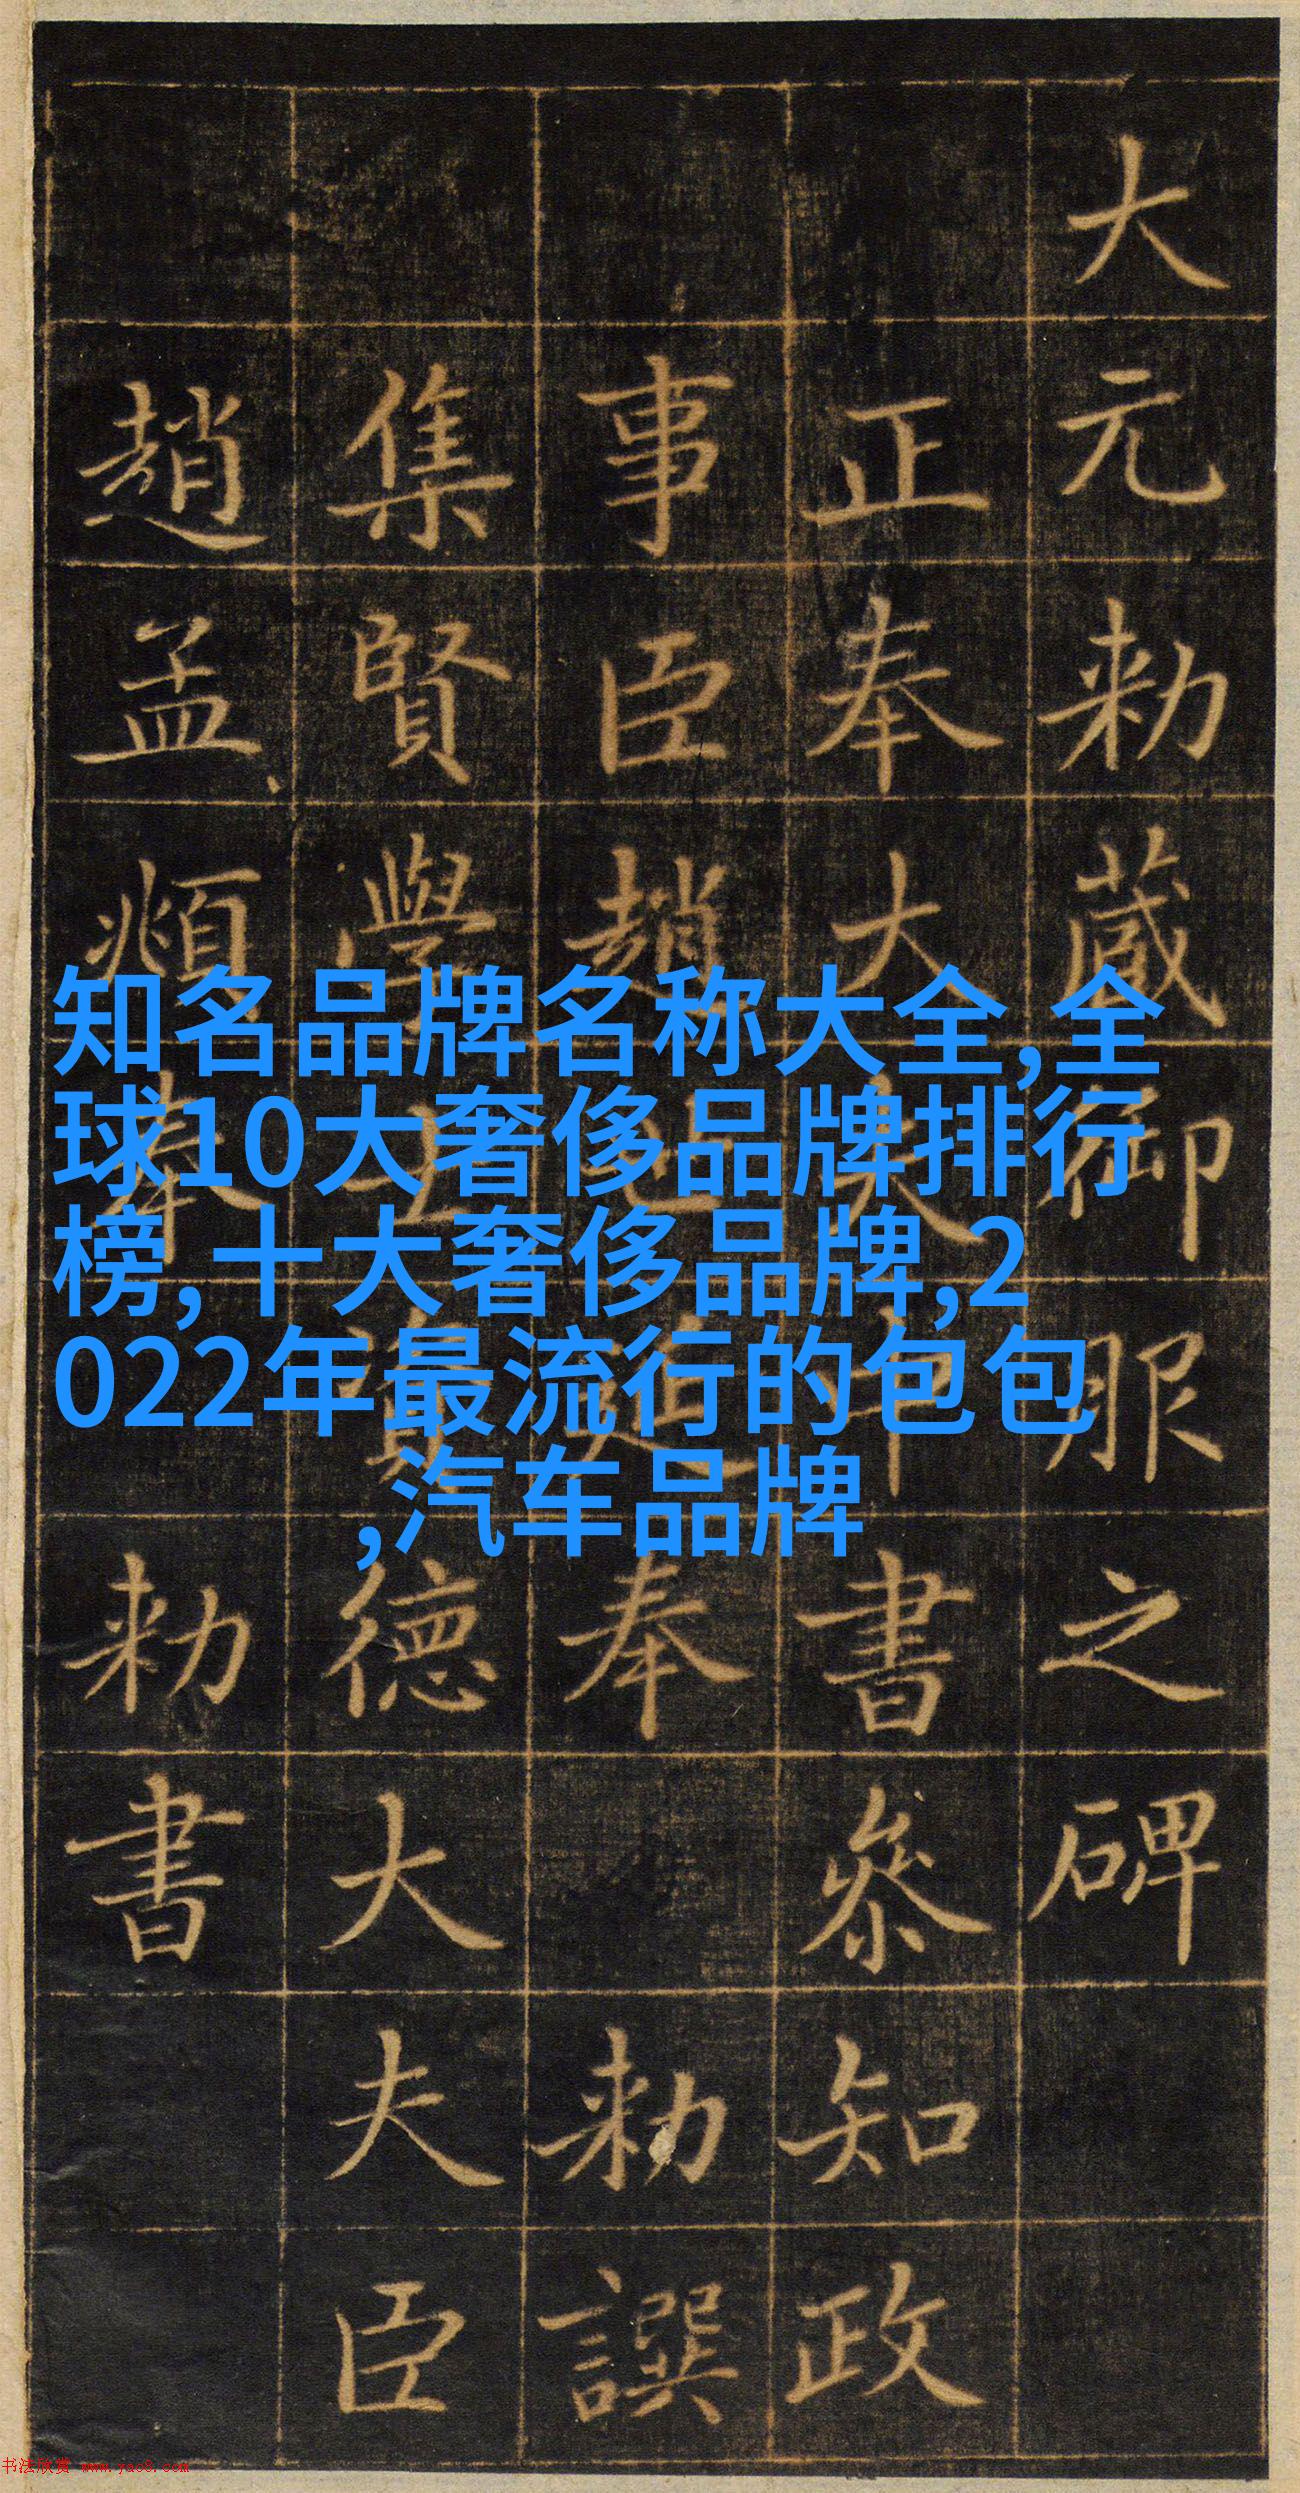 大元勅藏御服之碑
正奉大夫中書參知政
事臣趙世延奉勅譔
集賢學士資德大夫臣
趙孟頫奉勅書
知名品牌名称大全,全
球10大奢侈品牌排行
榜,十大奢侈品牌,2
022年最流行的包包
,汽车品牌
书法欣赏 www.yac8.com